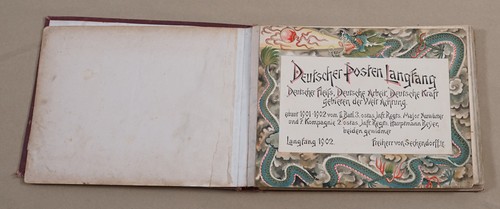 Deutscher Posten Langfang
Deutscher Fleiss, Deutsche Arbeit, Deutsche Kraft
gebieten der Welt Achtung
erbaut 1901-1902 vom II. Batl. 3. ostas. Inft. Regts. Major
und 7. Kompagnie 2. ostas. Inft. Regts. Hauptmann Beyer,
beiden gewidmet
Langfang 1902 Freiherr von Seckendorff